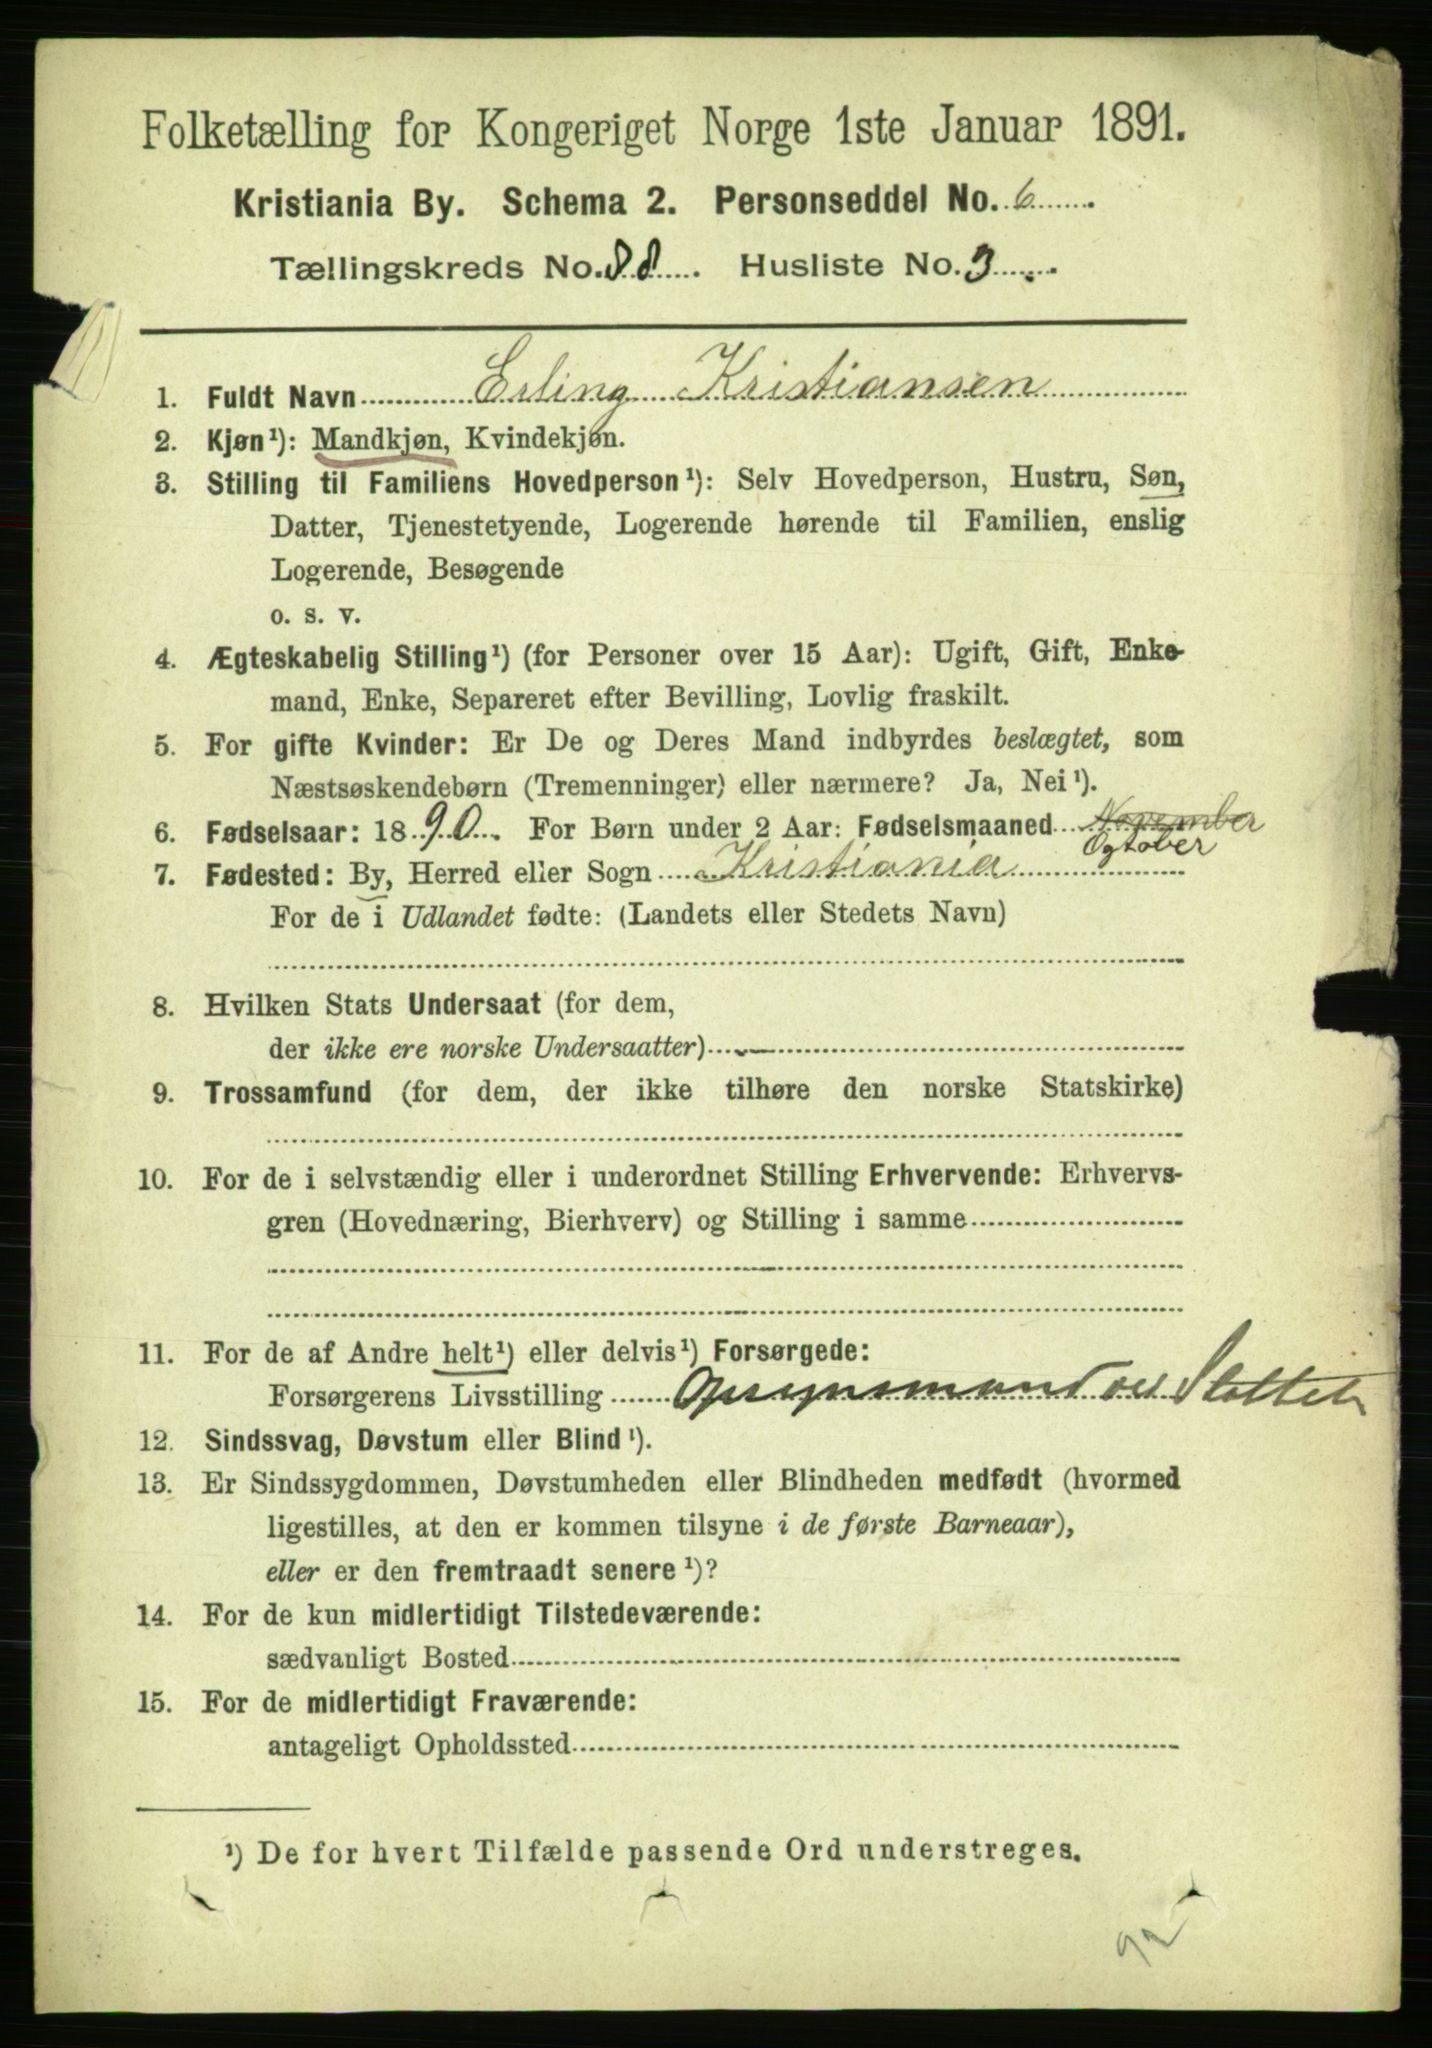 Folketælling for Kongeriget Norge 1ste Januar 1891.
Kristiania By. Schema 2. Personseddel No. 6
Tællingskreds No. 88. Husliste No. 3
1. Fuldt Navn Erling Kristiansen
2. Kjøn¹): Mandkjøn, Kvindekjøn.
3. Stilling til Familiens Hovedperson¹): Selv Hovedperson, Hustru, Søn,
Datter, Tjenestetyende, Logerende hørende til Familien, enslig
Logerende, Besøgende
o. s. v.
4. Ægteskabelig Stilling¹) (for Personer over 15 Aar): Ugift, Gift, Enke-
mand, Enke, Separeret efter Bevilling, Lovlig fraskilt.
5. For gifte Kvinder: Er De og Deres Mand indbyrdes beslægtet, som
Næstsøskendebørn (Tremenninger) eller nærmere? Ja, Nei¹).
6. Fødselsaar: 1890. For Børn under 2 Aar: Fødselsmaaned November
Ogtober
7. Fødested: By, Herred eller Sogn Kristiania
For de i Udlandet fødte: (Landets eller Stedets Navn)
8. Hvilken Stats Undersaat (for dem,
der ikke ere norske Undersaatter)
9. Trossamfund (for dem, der ikke tilhøre den norske Statskirke)
10. For de i selvstændig eller i underordnet Stilling Erhvervende: Erhvervs-
gren (Hovednæring, Bierhverv) og Stilling i samme
11. For de af Andre helt¹) eller delvis¹) Forsørgede:
Forsørgerens Livsstilling Opsynsmand ved Slottet
12. Sindssvag, Døvstum eller Blind¹).
13. Er Sindssygdommen, Døvstumheden eller Blindheden medfødt (hvormed
ligestilles, at den er kommen tilsyne i de første Barneaar),
eller er den fremtraadt senere¹)?
14. For de kun midlertidigt Tilstedeværende:
sædvanligt Bosted
15. For de midlertidigt Fraværende:
antageligt Opholdssted
¹) De for hvert Tilfælde passende Ord understreges.
92